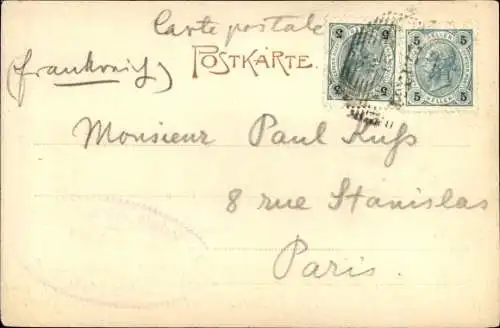 Carte postale
(Frankreich)
POSTKARTE.
5 5
HELLER HELLER
5 5
5 HELLER 5
Monsieur Paul Kuss
8 rue Stanislas
Paris.